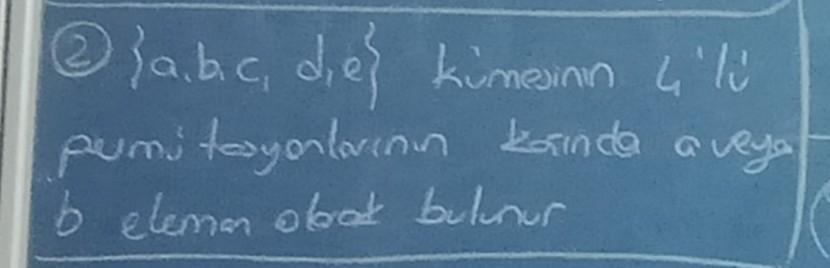 ② {a,b,c, d,e} kümesinin 4'lü
pumitasyonlarının kaçında a veya
b eleman olarak bulunur